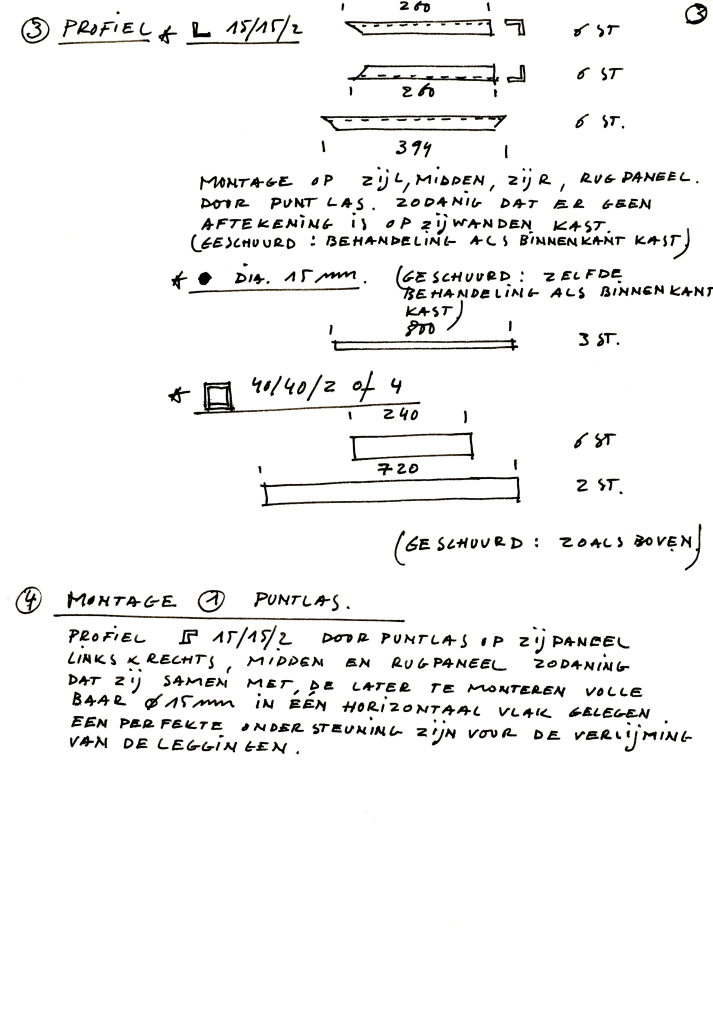 3
260
③ PROFIEL * L 15/15/2
6 ST
6 ST
260
6 ST.
394
MONTAGE OP ZIJL, MIDDEN, ZIJR, RUGPANEEL.
DOOR PUNTLAS. ZODANIG DAT ER GEEN
AFTEKENING IS OP ZIJWANDEN KAST.
(GESCHUURD : BEHANDELING ALS BINNENKANT KAST)
* ● DIA. 15 mm. (GESCHUURD : ZELFDE
BEHANDELING ALS BINNENKANT
KAST)
800
3 ST.
* 40/40/2 of 4
240
6 ST
720
2 ST.
(GESCHUURD : ZOALS BOVEN)
④ MONTAGE ① PUNTLAS.
PROFIEL 15/15/2 DOOR PUNTLAS OP ZIJPANEEL
LINKS & RECHTS, MIDDEN EN RUGPANEEL ZODANING
DAT ZIJ SAMEN MET, DE LATER TE MONTEREN VOLLE
BAAR Ø 15 mm IN ÉÉN HORIZONTAAL VLAK GELEGEN
EEN PERFEKTE ONDERSTEUNING ZIJN VOOR DE VERLIJMING
VAN DE LEGGINGEN.